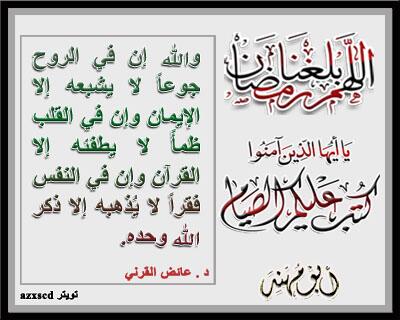 اللهم بلغنا رمضان
يا أيها الذين آمنوا
كتب عليكم الصيام
أبو مهند
والله إن في الروح
جوعاً لا يشبعه إلا
الإيمان وإن في القلب
ظمأ لا يطفئه إلا
القرآن وإن في النفس
فقراً لا يُذهبه إلا ذكر
الله وحده.
د . عائض القرني
تويتر azxscd